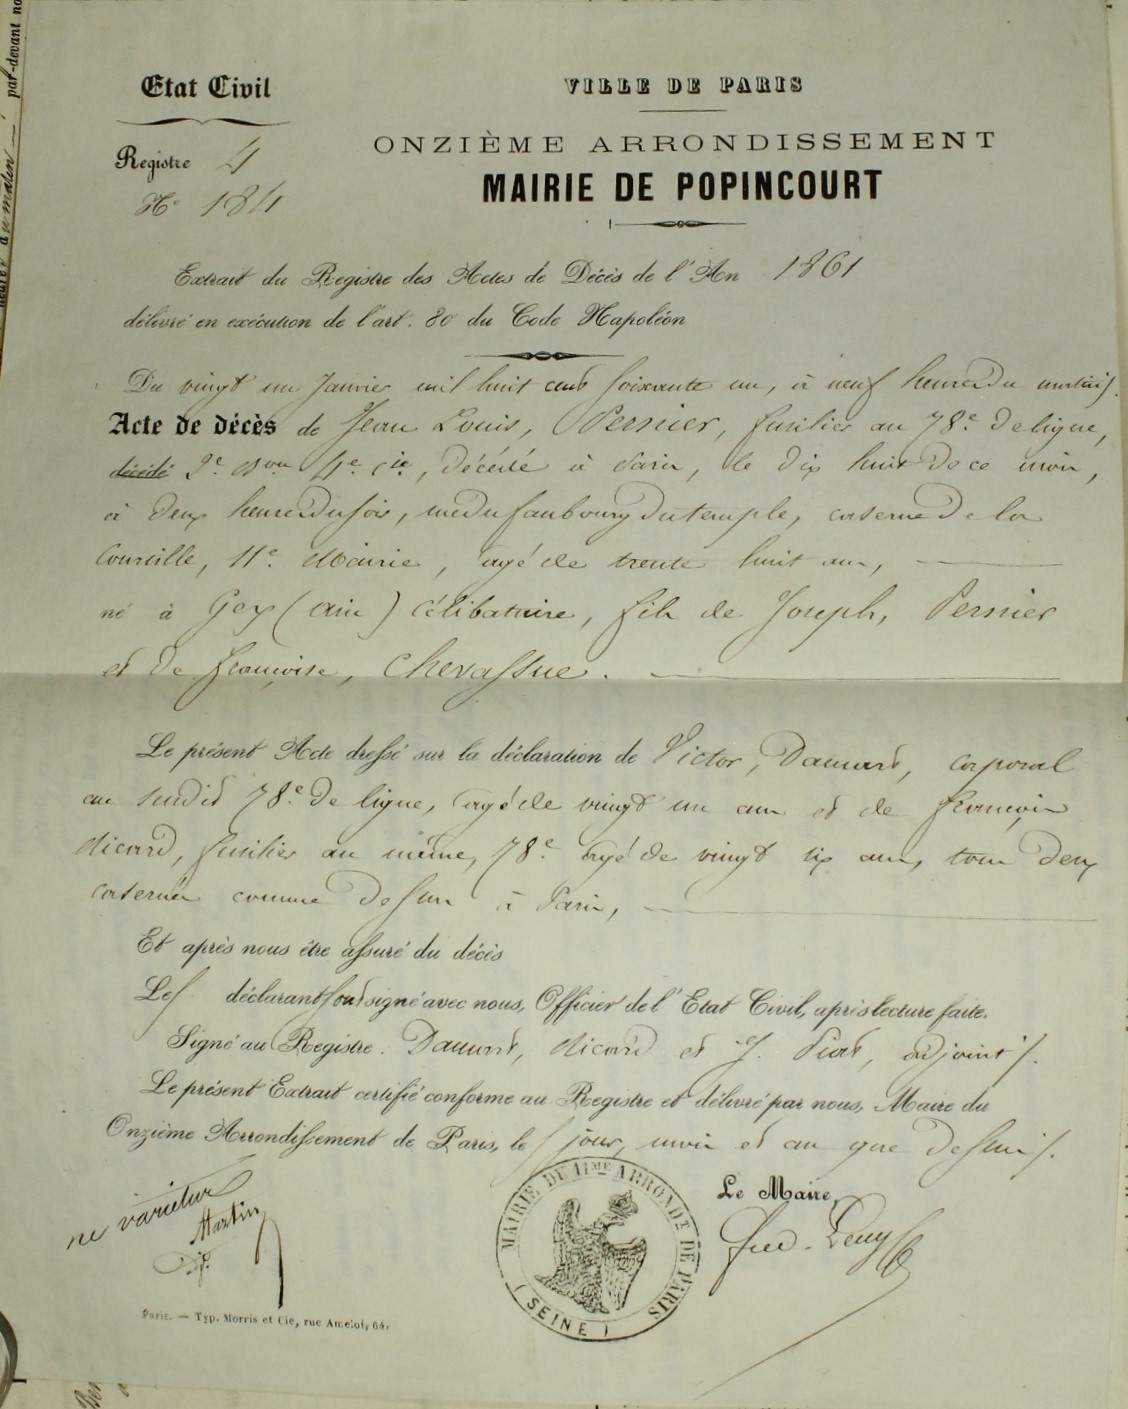 par-devant
du matin
Etat Civil
VILLE DE PARIS
ONZIÈME ARRONDISSEMENT
Registre 4
MAIRIE DE POPINCOURT
N° 184
Extrait du Registre des Actes de Décès de l'An 1861
délivré en exécution de l'art. 80 du Code Napoléon
Du vingt un Janvier mil huit cent soixante un, à neuf heures du matin.
Acte de décès de Jean Louis, Pernier, fusilier au 78e. de ligne,
décédé 2e. Bon 4e. Cie., décédé à Paris, le dix huit de ce mois,
à deux heures du soir, rue du faubourg du temple, caserne de la
Courtille, 11e. Mairie, âgé de trente huit ans,
né à Gex (ain) célibataire, fils de Joseph, Pernier
et de françoise, Chevassue.
Le présent Acte dressé sur la déclaration de Victor, Daumart, Caporal
au susdit 78e. de ligne, âgé de vingt un ans et de françois
Micard, fusilier au même, 78e. âgé de vingt six ans, tous deux
casernés comme dessus à Paris,
Et après nous être assuré du décès
Les déclarants ont signé avec nous, Officier de l'Etat Civil, après lecture faite.
Signé au Registre. Daumart, Micard et J. Piat, adjoint.
Le présent Extrait certifié conforme au Registre et délivré par nous, Maire du
Onzième Arrondissement de Paris, le jour, mois et an que dessus.
ne varietur
Martin
MAIRIE DU 11ME ARRONDT DE PARIS
(SEINE)
Le Maire,
fred. Levy
Paris. — Typ. Morris et Cie, rue Amelot, 64.